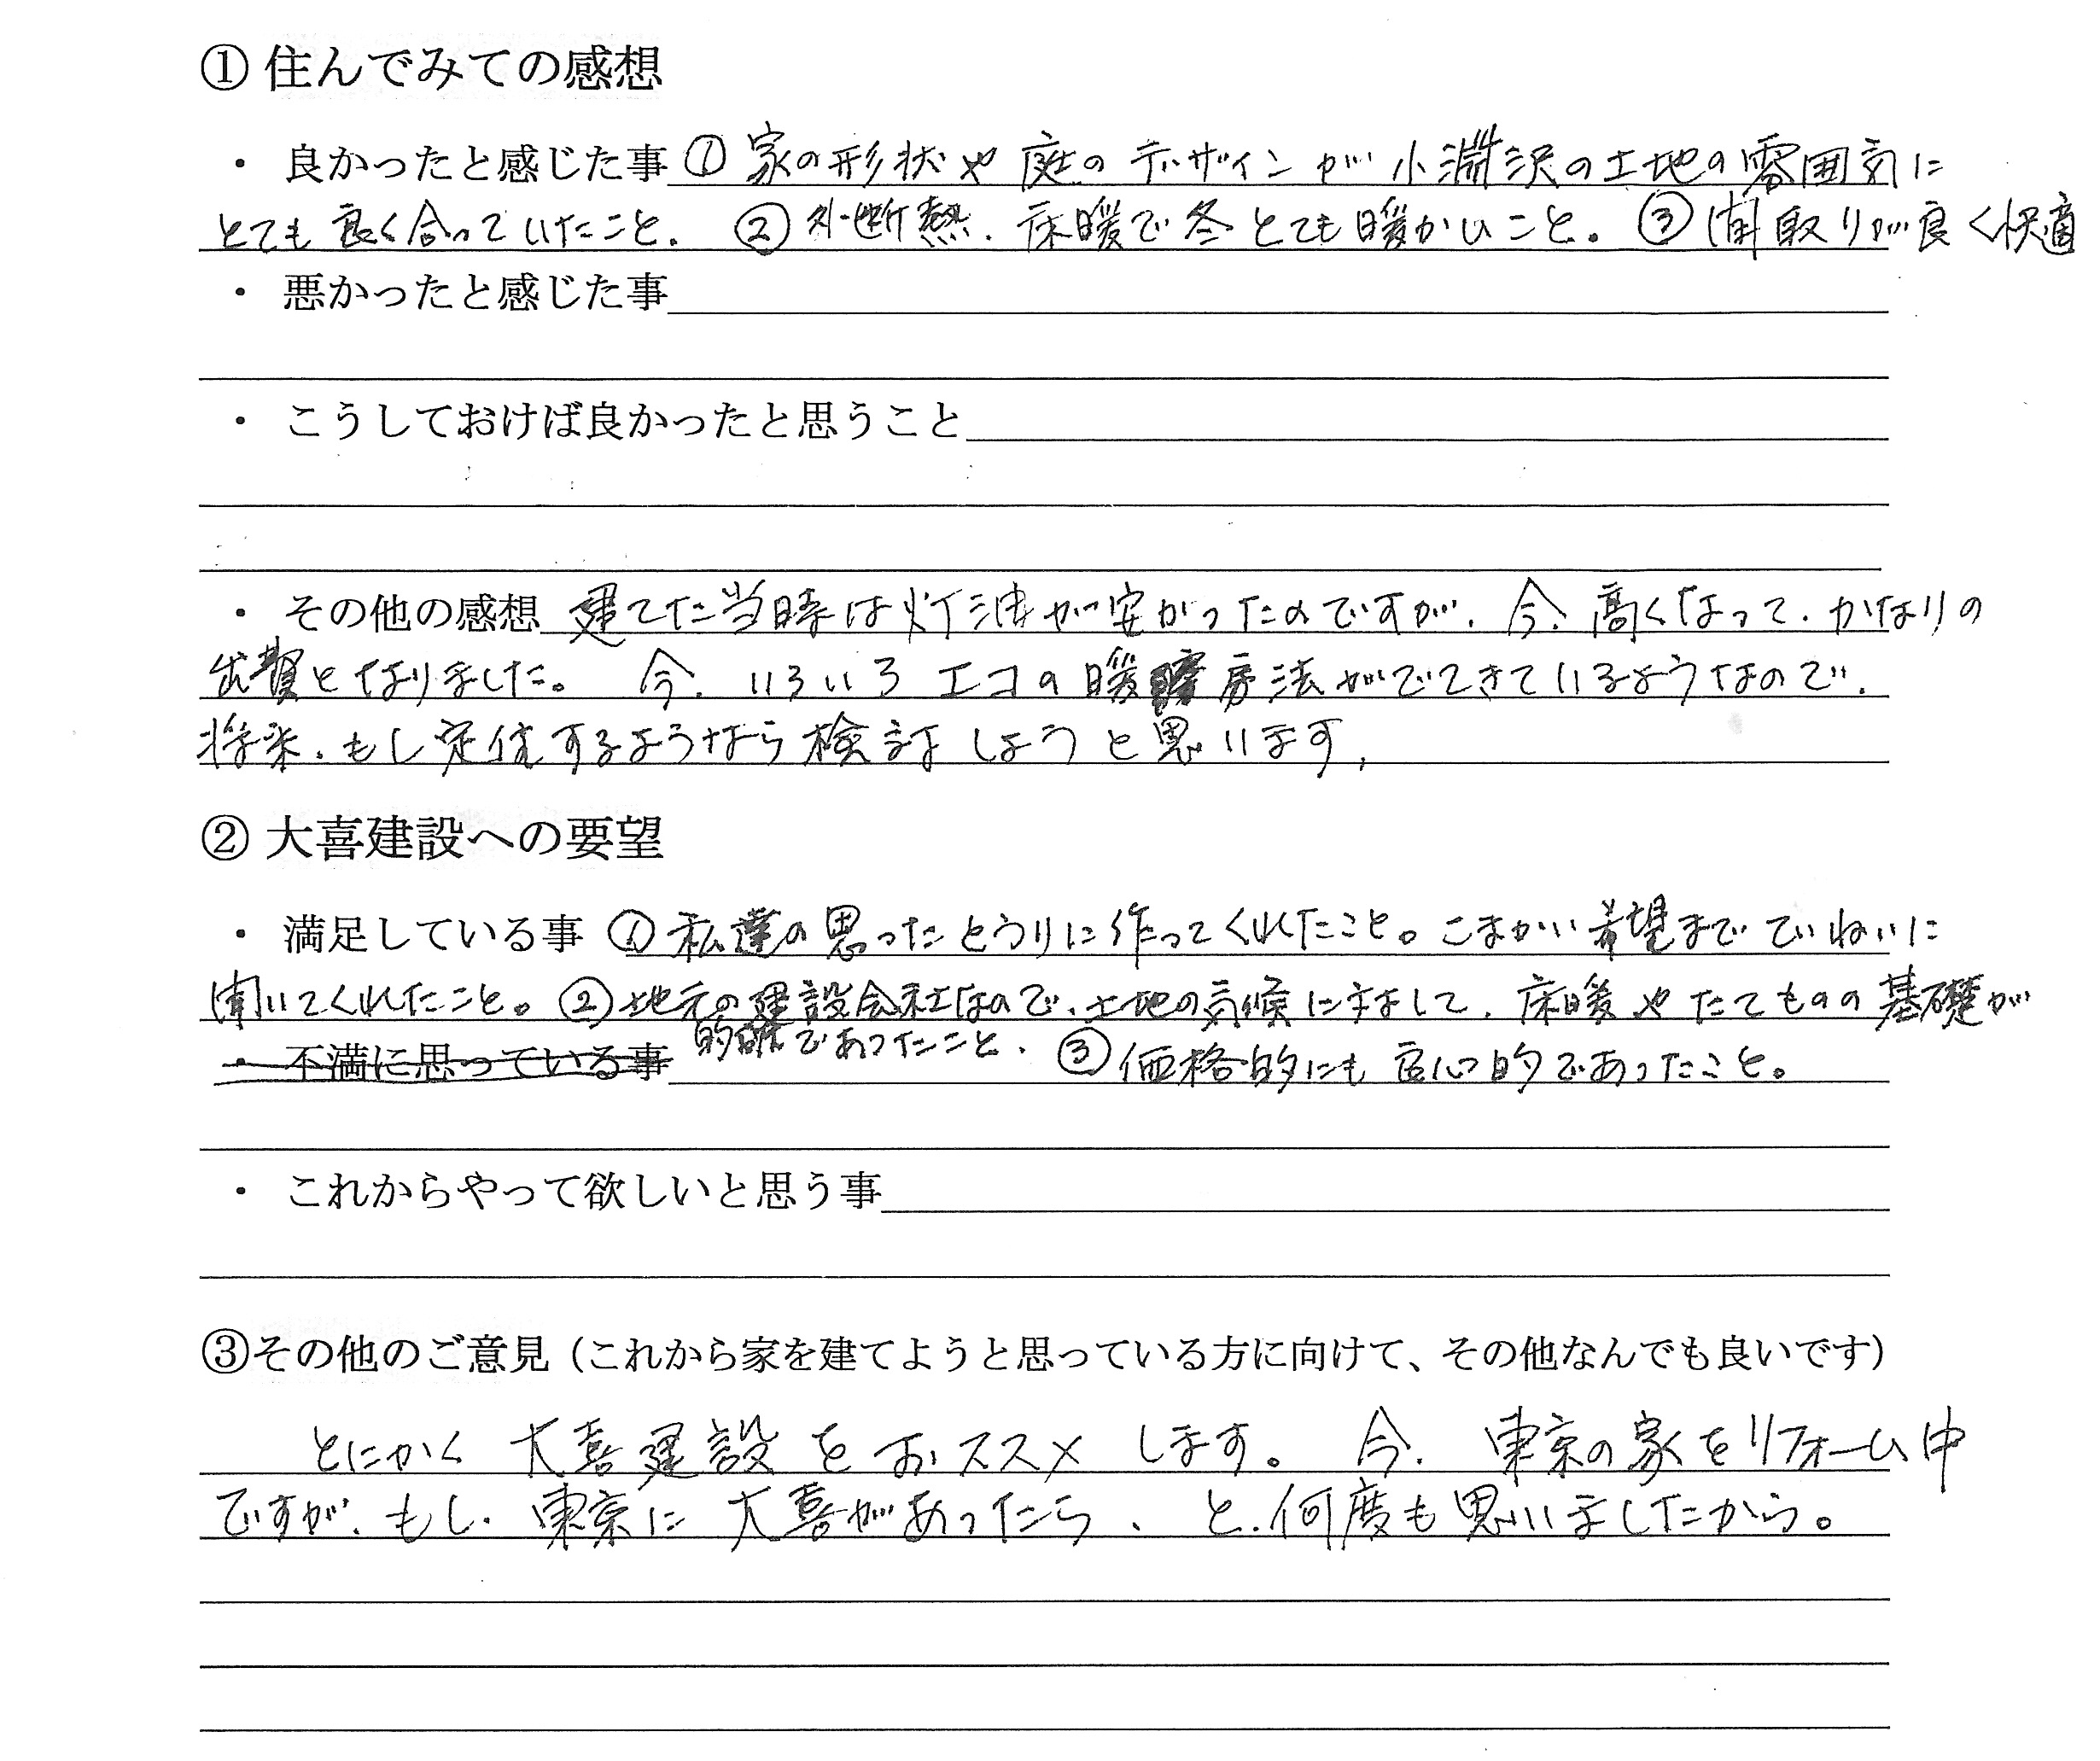 ① 住んでみての感想
・ 良かったと感じた事 ① 家の形状や庭のデザインが小淵沢の土地の雰囲気に
とても良く合っていたこと。 ② 外断熱、床暖で冬とても暖かいこと。 ③ 間取りが良く快適
・ 悪かったと感じた事
・ こうしておけば良かったと思うこと
・ その他の感想 建てた当時は灯油が安かったのですが、今、高くなって、かなりの
出費となりました。 今、いろいろエコの暖房法がでてきているようなので、
将来、もし定住するようなら検討しようと思います。
② 大喜建設への要望
・ 満足している事 ① 私達の思ったとうりに作ってくれたこと。こまかい希望までていねいに
聞いてくれたこと。 ② 地元の建設会社なので、土地の気候に対して、床暖やたてものの基礎が
的確であったこと、
・ 不満に思っている事 ③ 価格的にも良心的であったこと。
・ これからやって欲しいと思う事
③その他のご意見（これから家を建てようと思っている方に向けて、その他なんでも良いです）
とにかく 大喜建設をおススメします。 今、東京の家をリフォーム中
ですが、もし、東京に大喜があったら、と、何度も思いましたから。